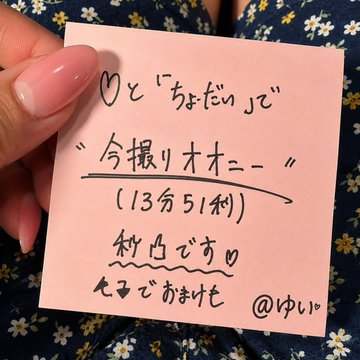 ♡と「ちょーだい」で
"今撮りオオニー"
(13分51秒)
秒凸です♡
でおまけも
@ゆい♡